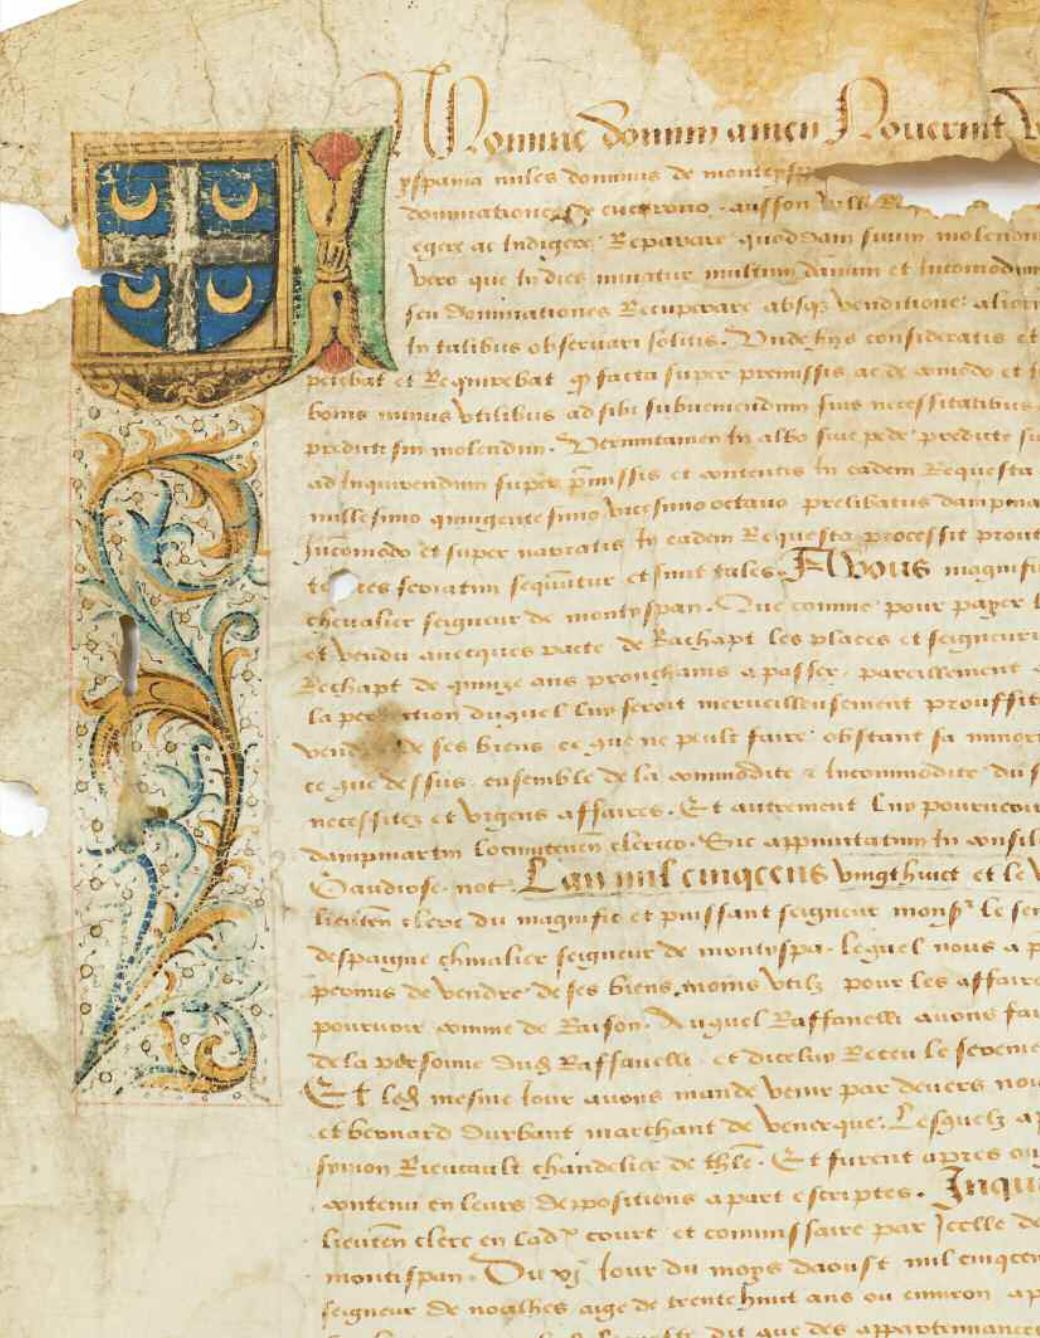 In Nomine domini amen Noverint
yspania miles dominus de montespa
dominationes de
egere ac Indigere Reparare quoddam suum molendin
vero que In dies minatur multum danum et Incomodum
seu dominationes Recuperare absqz venditione alior
In talibus observari solitis. Unde hijs consideratis et
petebat et Requirebat qp facta super premissis ac de comodo et
bonis minus Vtilibus ad sibi subveniendum suis necessitatibus
predictum molendinum. Veruntamen In albo sive pede predicte
ad Inquirendum super pmissis et contentis In eadem Requesta
millesimo quingentesimo vicesimo octavo prelibatus dampma
Incomodo et super narratis In eadem Requesta processit prout
te tes seriatim sequntur et sunt tales. A Vous magnifi
chevalier seigneur de montespan. Que comme pour payer
et vendu avecques pacte de Rachapt les places et seigneuri
Rechapt de quinze ans prouchains a passer pareillement
la per tion duquel luy seroit merveilleusement prouffit
vend de ses biens ce que ne peult faire obstant sa minori
ce que dessus ensemble de la commodite z Incommodite du
necessitez et vrgens affaires. Et autrement luy pourvoir
dampmartin locumtenen clerico. Sic appunctatum In consil
Gaudiose. not. Lan mil cinqcens vingthuict et le
lieuten clerc du magnific et puissant seigneur mons le sen
despaigne chevalier seigneur de montespa. lequel nous a p
permis de vendre de ses biens moins vtilz pour les affaire
pourvoir comme de Raison. Auquel Raffanelli avons fai
de la persone dud Raffanelli et dicelluy Receu le sereme
Et led mesme Jour avons mande venir par devers nou
et bernard durbant marchant de venerque. Lesquelz a
symon Rieucault chandelier de thle. Et furent apres
contenu en leurs depositions apart escriptes. Inqu
lieuten clerc en lad court et commissaire par Icelle de
montispan. Du xj Jour du moys daoust mil cinqcen
seigneur de noalhes aige de trente huict ans ou environ
dit que des appartennance